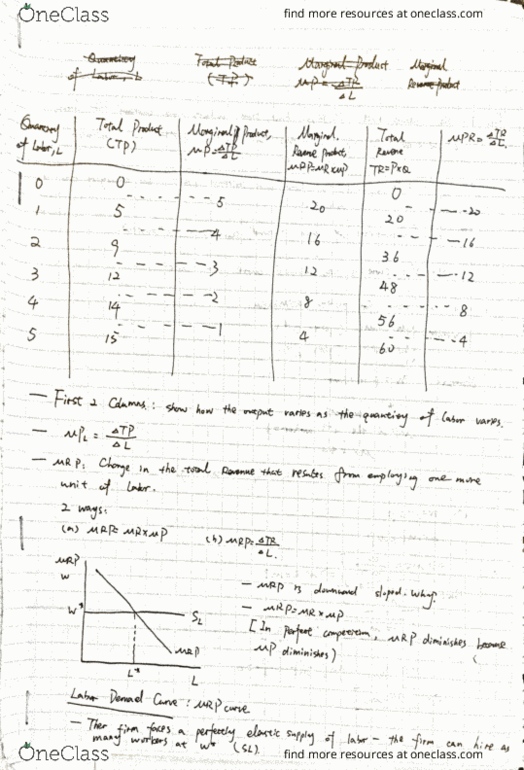 OneClass
find more resources at oneclass.com
Quantity of Labor, L
Total Product (TP)
Marginal Product MP = ΔTR/ΔL
Marginal Revenue Product
Quantity of Labor, L | Total Product (TP) | Marginal Product, MP = ΔTP/ΔL | Marginal Revenue Product MRP = MR×MP | Total Revenue TR = P×Q | MPR = ΔTR/ΔL
0 0 0
5 20 -20
1 5 20
4 16 -16
2 9 36
3 12 -12
3 12 48
2 8 8
4 14 56
1 4 -4
5 15 60
— First 2 Columns: show how the output varies as the quantity of labor varies.
— MPL = ΔTP/ΔL
— MRP: Change in the total Revenue that results from employing one more
unit of Labor.
2 ways:
(a) MRP = MR×MP (b) MRP = ΔTR/ΔL.
MRP
W
W*
SL
MRP
L*
L
— MRP is downward sloped. Why?
— MRP = MR × MP
[In Perfect competition, MRP diminishes because
MP diminishes)
Labor Demand Curve: MRP curve
— Ther firm faces a perfectly elastic supply of labor – the firm can hire as
many workers at W* (SL)
OneClass
find more resources at oneclass.com